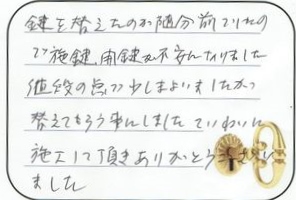 鍵を替えたのが随分前でしたの
で施錠、開鍵が不安になりました
値段の点で少しまよいましたが
替えてもらう事にしました ていねいに
施工して頂きありがとうござい
ました